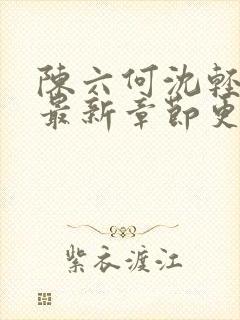 陳六何沈輕
最新章節更
紫衣渡江